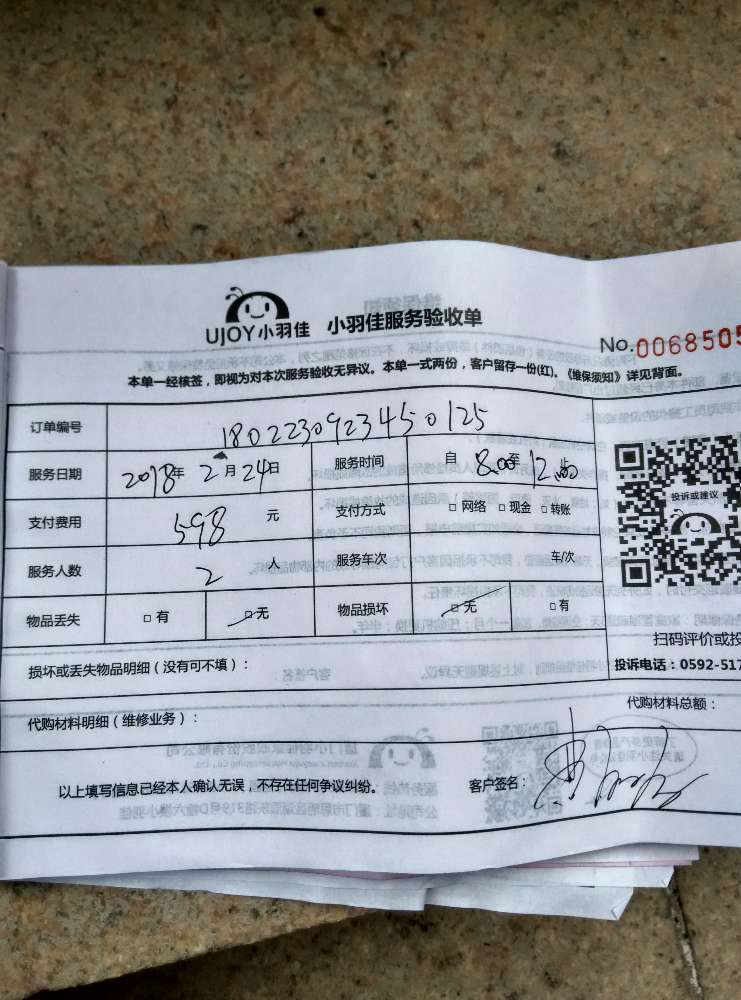 UJOY小羽佳 小羽佳服务验收单
No.0068505
本单一经核签，即视为对本次服务验收无异议。本单一式两份，客户留存一份(红)。《维保须知》详见背面。
订单编号 1802230923450125
服务日期 2018年 2月24日 服务时间 自 8:00至12:00止
支付费用 598 元 支付方式 □网络 □现金 □转账
投诉或建议
服务人数 2 人 服务车次 车/次
物品丢失 □有 □无 物品损坏 □无 □有
扫码评价或投
损坏或丢失物品明细（没有可不填）：
投诉电话：0592-517
代购材料明细（维修业务）：
代购材料总额：
以上填写信息已经本人确认无误，不存在任何争议纠纷。 客户签名：